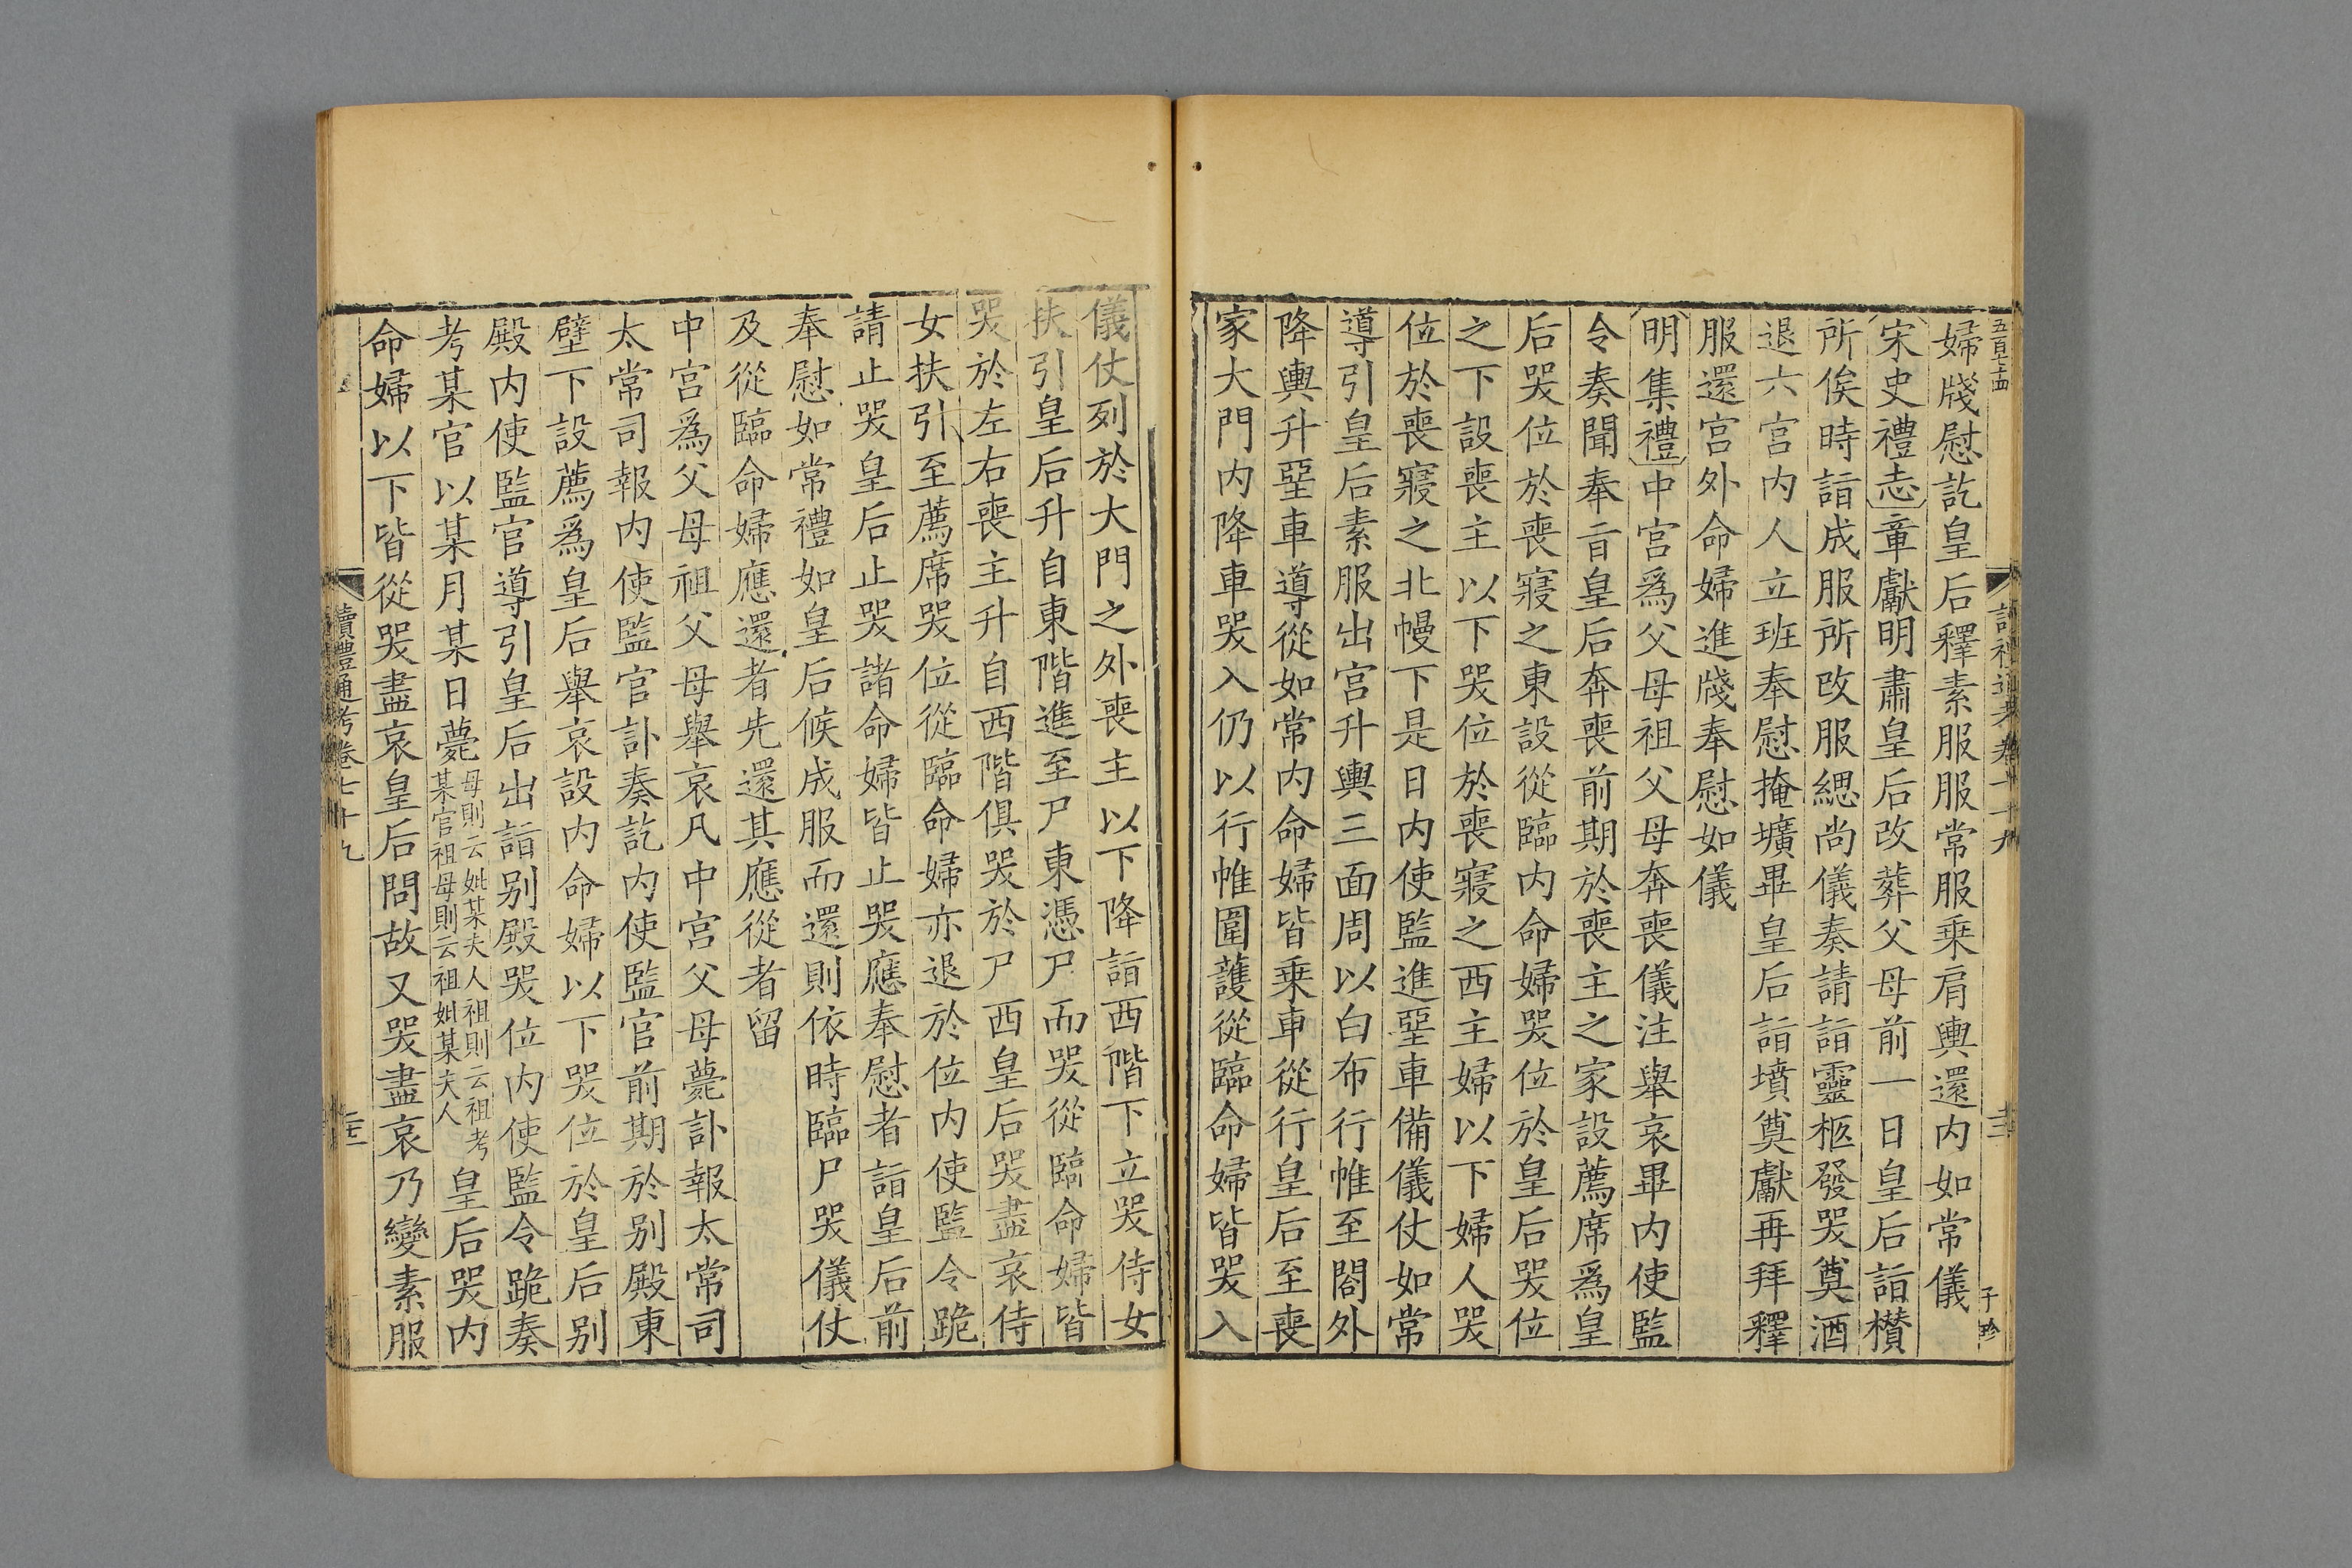 婦牋慰訖皇后釋素服服常服乗肩輿還内如常儀
宋史禮志章獻明肅皇后改葬父母前一日皇后詣欑
所俟時詣成服所改服緦尚儀奏請詣靈柩發哭奠酒
退六宫内人立班奉慰掩壙畢皇后詣墳奠獻再拜釋
服還宫外命婦進牋奉慰如儀
明集禮中宫爲父母祖父母奔喪儀注舉哀畢内使監
令奏聞奉㫖皇后奔喪前期於喪主之家設薦席爲皇
后哭位於喪寢之東設從臨内命婦哭位於皇后哭位
之下設喪主以下哭位於喪寢之西主婦以下婦人哭
位於喪寢之北幔下是日内使監進堊車備儀仗如常
導引皇后素服出宫升輿三面周以白布行帷至閤外
降輿升堊車導從如常内命婦皆乗車從行皇后至喪
家大門内降車哭入仍以行帷圍護從臨命婦皆哭入
儀仗列於大門之外喪主以下降詣西階下立哭侍女
扶引皇后升自東階進至尸東憑尸而哭從臨命婦皆
哭於左右喪主升自西階俱哭於尸西皇后哭盡哀侍
女扶引至薦席哭位從臨命婦亦退於位内使監令跪
請止哭皇后止哭諸命婦皆止哭應奉慰者詣皇后前
奉慰如常禮如皇后候成服而還則依時臨尸哭儀仗
及從臨命婦應還者先還其應從者留
中宫爲父母祖父母舉哀凡中宫父母薨訃報太常司
太常司報内使監官訃奏訖内使監官前期於别殿東
壁下設薦爲皇后舉哀設内命婦以下哭位於皇后别
殿内使監官導引皇后出詣别殿哭位内使監令跪奏
考某官以某月某日薨母則云妣某夫人祖則云祖考某官祖母則云祖妣某夫人皇后哭内
命婦以下皆從哭盡哀皇后問故又哭盡哀乃變素服
讀禮通考卷七十九